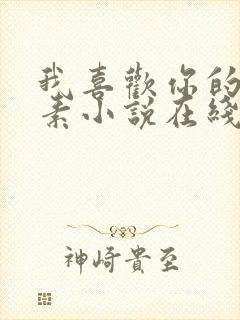 我喜歡你的
素小說在綫
神崎貴至